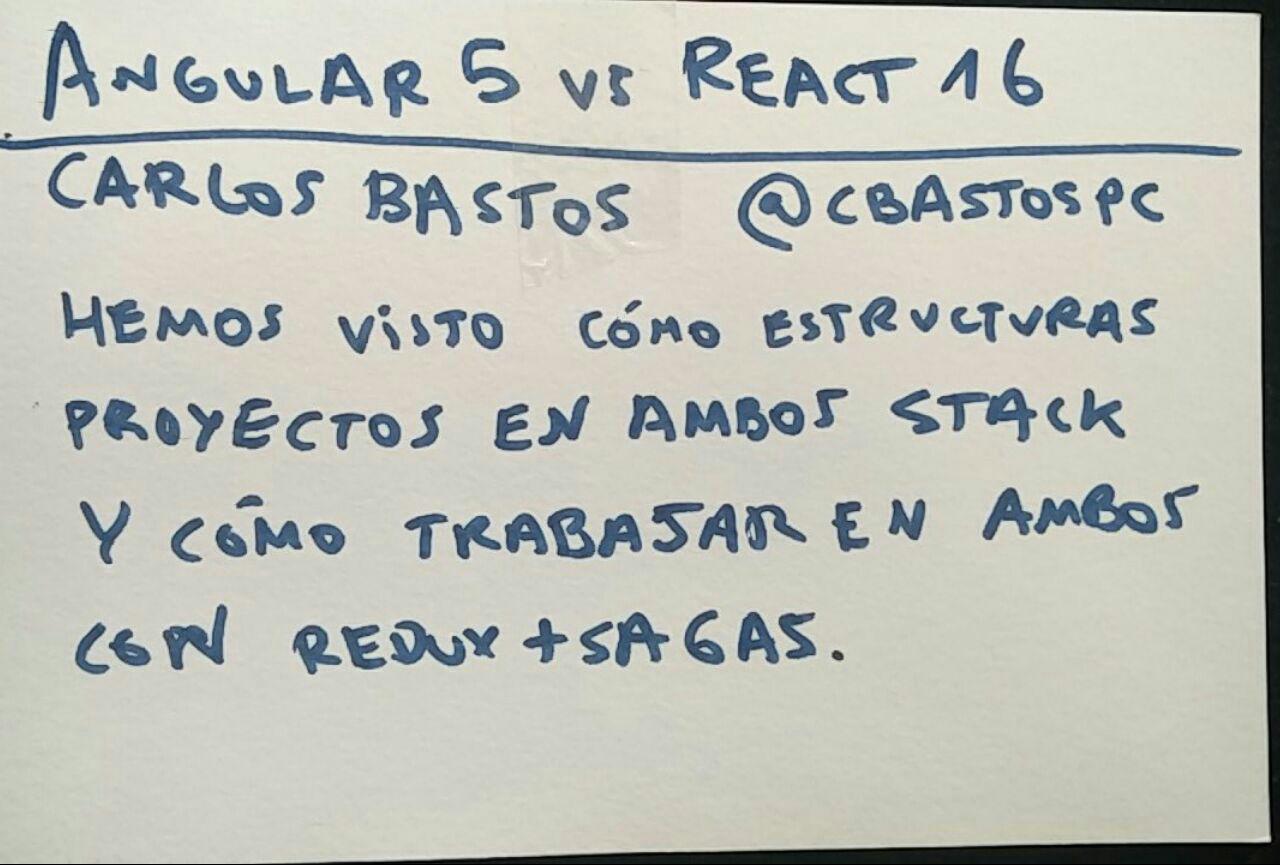 ANGULAR 5 VS REACT 16
CARLOS BASTOS @CBASTOSPC
HEMOS VISTO CÓMO ESTRUCTURAS
PROYECTOS EN AMBOS STACK
Y CÓMO TRABAJAR EN AMBOS
CON REDUX + SAGAS.